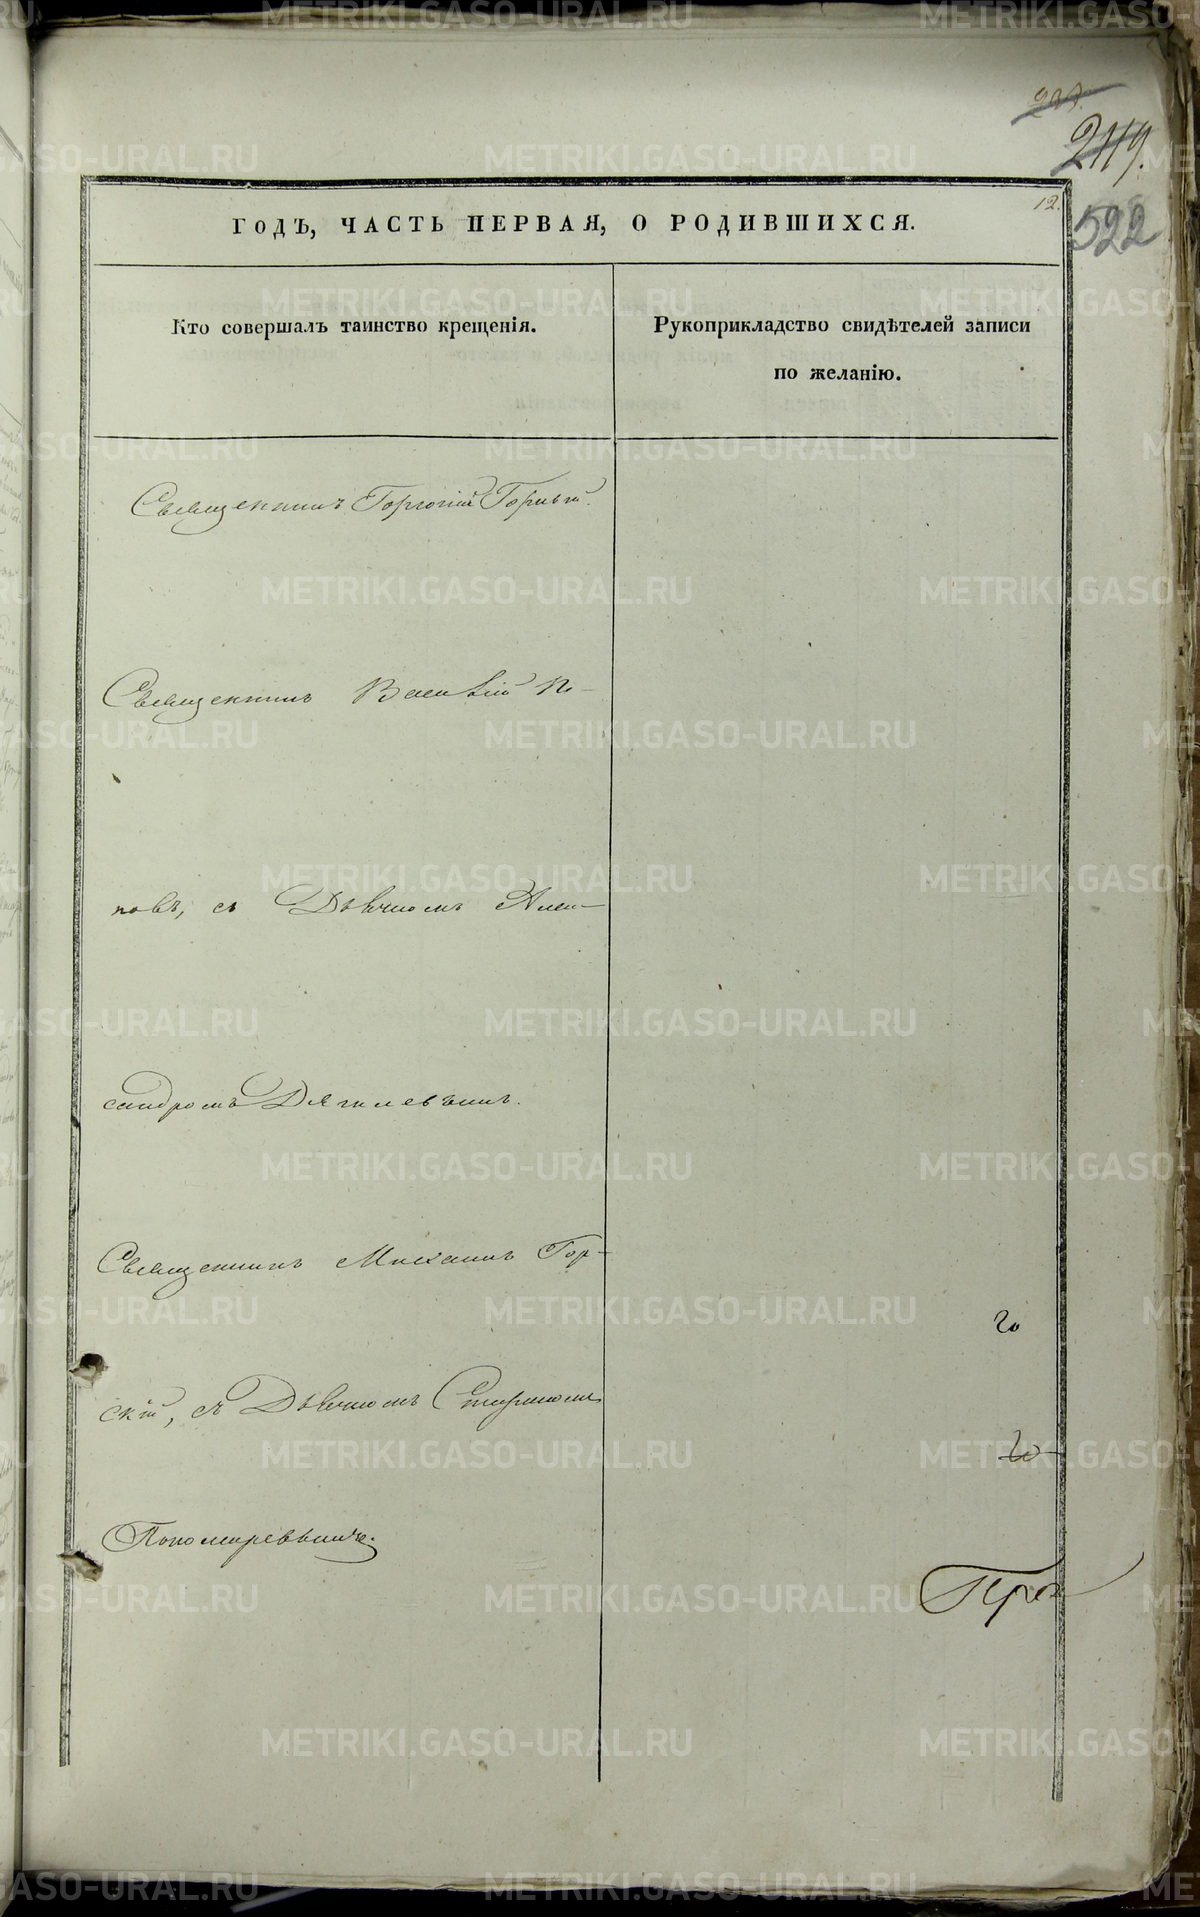 249.
12.
522
ГОДЪ, ЧАСТЬ ПЕРВАЯ, О РОДИВШИХСЯ.
Кто совершалъ таинство крещенія.
Рукоприкладство свидѣтелей записи
по желанію.
Священникъ Горькій.
Священникъ Василій По-
повъ, съ Дьячкомъ Алек-
сандромъ Дягилевымъ.
Священникъ Михаилъ Гор-
скій, съ Дьячкомъ
Пономаревымъ.
METRIKI.GASO-URAL.RU